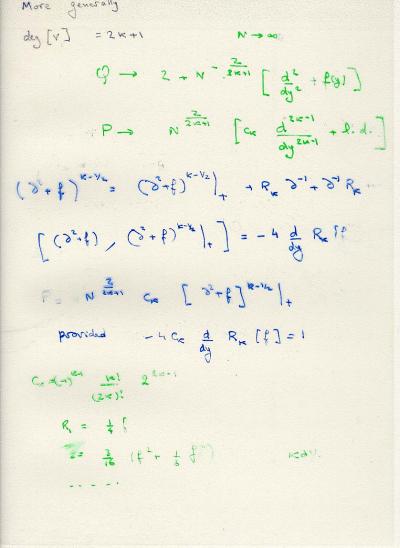 More generally
deg [V] = 2k+1 N → ∞
Q → 2 + N^{-2/(2k+1)} [ d²/dy² + f(y) ]
P → N^{2/(2k+1)} [ C_k d^{2k-1}/dy^{2k-1} + l.d. ]
(∂²+f)^{k-1/2} = (∂²+f)^{k-1/2}|₊ + R_k ∂⁻¹ + ∂⁻¹ R_k
[ (∂²+f) , (∂²+f)^{k-1/2}|₊ ] = -4 d/dy R_k [f
P = N^{2/(2k+1)} C_k [ ∂²+f ]^{k-1/2}|₊
provided -4 C_k d/dy R_k [f] = 1
k! / (2k)! 2^{2k-1}
R₁ = 1/4 f
= 3/16 (f² + 1/3 f'')
. . . . .